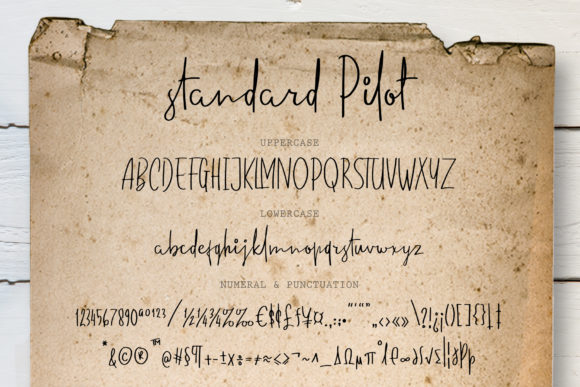 standard Pilot
UPPERCASE
ABCDEFGHIJKLMNOPQRSTUVWXYZ
LOWERCASE
abcdefghijklmnopqrstuvwxyz
NUMERAL & PUNCTUATION
1234567890ao123/½¼¾%‰€$¢£ƒ¥¤.,:;•"'“”„‚‹›«»\?!¿¡()[]{}‡
*&©®™@#§¶+-±×÷=≠≈<>¬~^_∆Ωµπ°ℓ℮∞∂∫√∑||∂